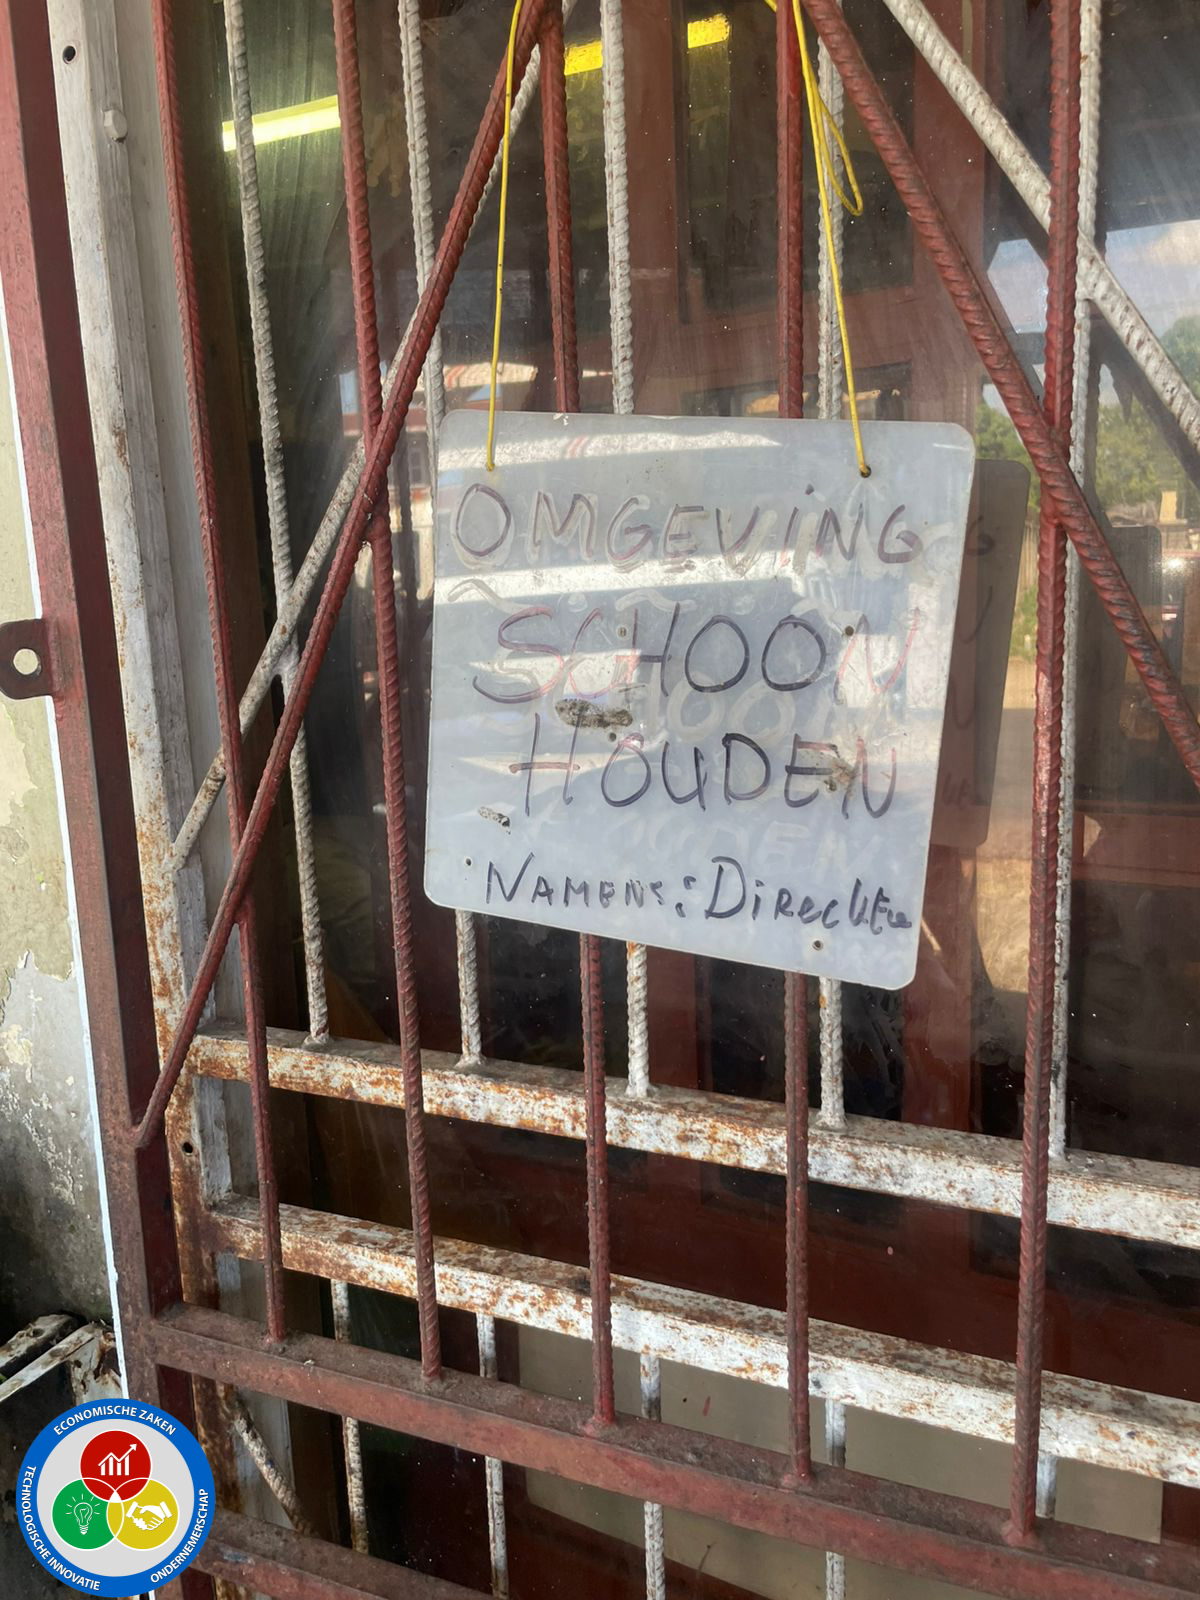 OMGEVING
SCHOON
HOUDEN
NAMENS: DIRECKTIE
ECONOMISCHE ZAKEN
TECHNOLOGISCHE INNOVATIE
ONDERNEMERSCHAP